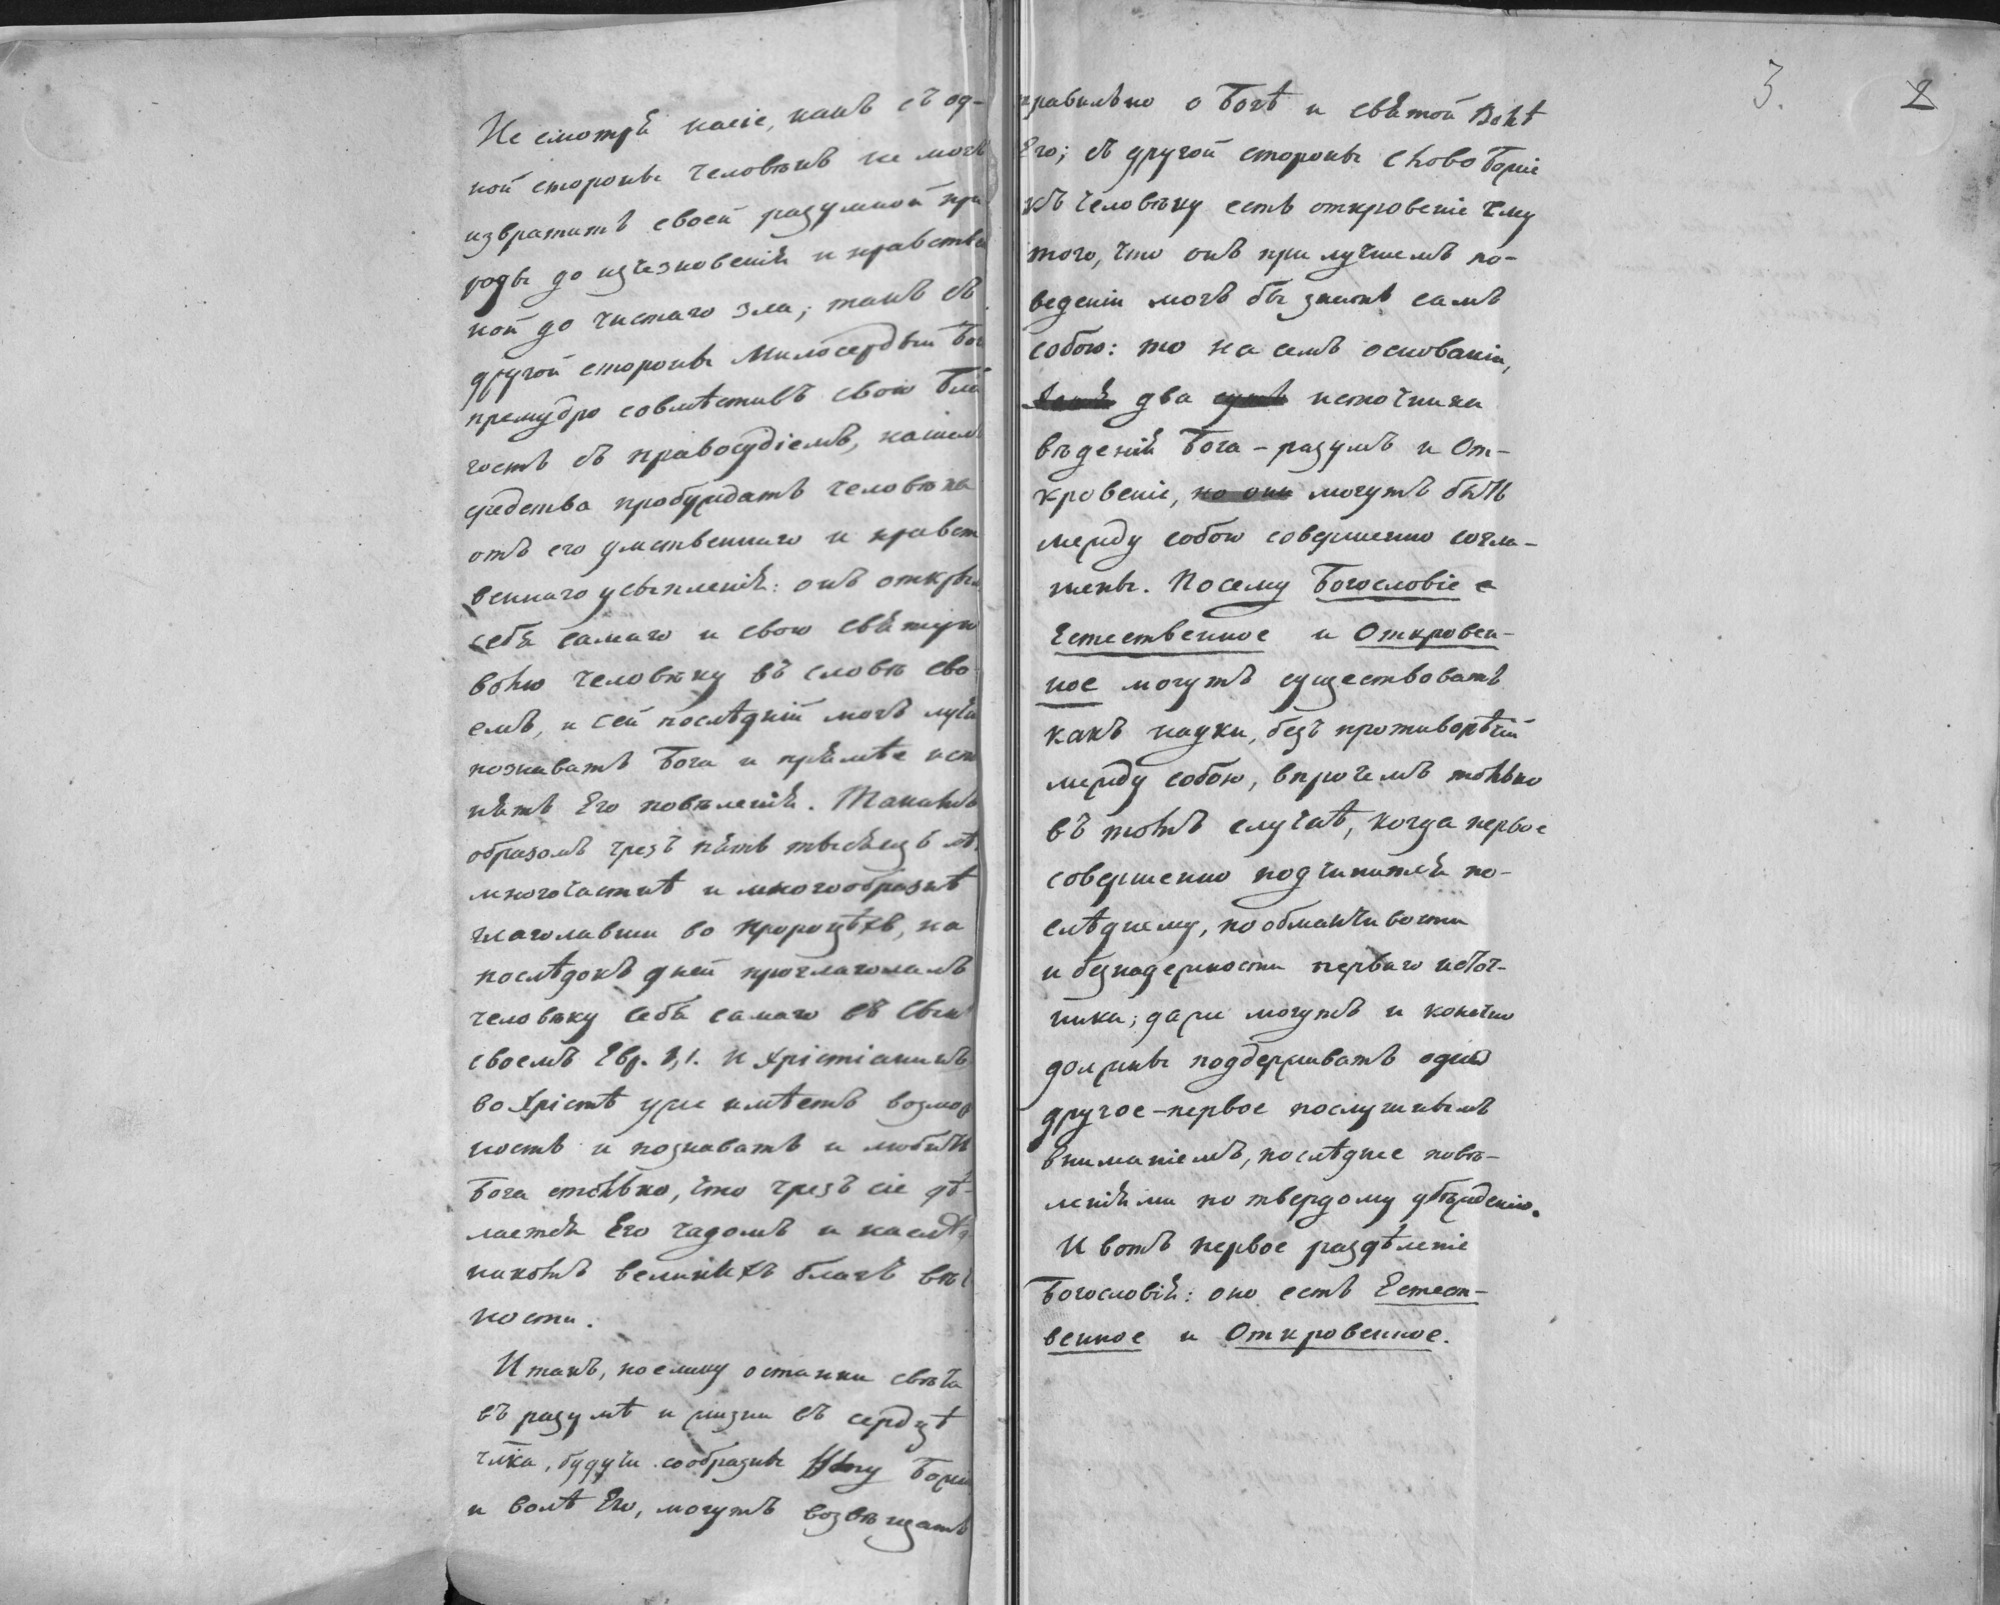 Не смотря на сіе, какъ съ од-
ной стороны человѣкъ не могъ
извратить своей разумной при
роды до изчезновенія и нравствен
ной до чистаго зла; такъ съ
другой стороны Милосердый Бог
премудро совмѣстивъ свою бла
гость съ правосудіемъ, нашел
средства пробуждать человѣка
отъ его умственнаго и нравст
веннаго усыпленія: онъ открыл
себя самаго и свою святую
волю человѣку въ словѣ сво-
емъ, и сей послѣдній могъ лучше
познавать Бога и прямѣе исп
нять Его повѣленія. Такимъ
образомъ чрезъ пять тысящъ лѣ
многочастнѣ и многообразнѣ
глаголавши во пророцѣхъ, на
послѣдокъ дней проглаголалъ
человѣку себя самаго въ Сынѣ
своемъ Евр. 1,1. И Хрістіанинъ
во Хрістѣ уже имѣетъ возмож
ность и познавать и любить
Бога столько, что чрезъ сіе дѣ-
лается Его чадомъ и наслѣд
никомъ великихъ благъ вѣч
ности.
Итакъ, поелику остатки свѣта
въ разумѣ и жизни въ сердцѣ
чл͠ка, будучи сообразны Уму Божію
и волѣ Его, могутъ возвѣщать
3. 2
правильно о Богѣ и святой Волѣ
Его; съ другой стороны Слово Божіе
къ человѣку есть откровеніе ему
того, что онъ при лучшемъ по-
веденіи могъ бы знать самъ
собою: то на семъ основаніи,
два суть источника
вѣденія Бога – разумъ и От-
кровеніе, но они могутъ быть
между собою совершенно согла-
шены. Посему Богословіе е
Естественное и Откровен-
ное могутъ существовать
какъ науки, безъ противорѣчій
между собою, впрочемъ только
въ томъ случаѣ, когда первое
совершенно подчинится по-
слѣднему, по обманчивости
и безнадежности перваго источ-
ника; даже могутъ и конечно
должны поддерживать одно
другое – первое послушнымъ
вниманіемъ, послѣднее повѣ-
леніями по твердому убѣжденію.
И вотъ первое раздѣленіе
Богословія: оно есть Естест-
венное и Откровенное.